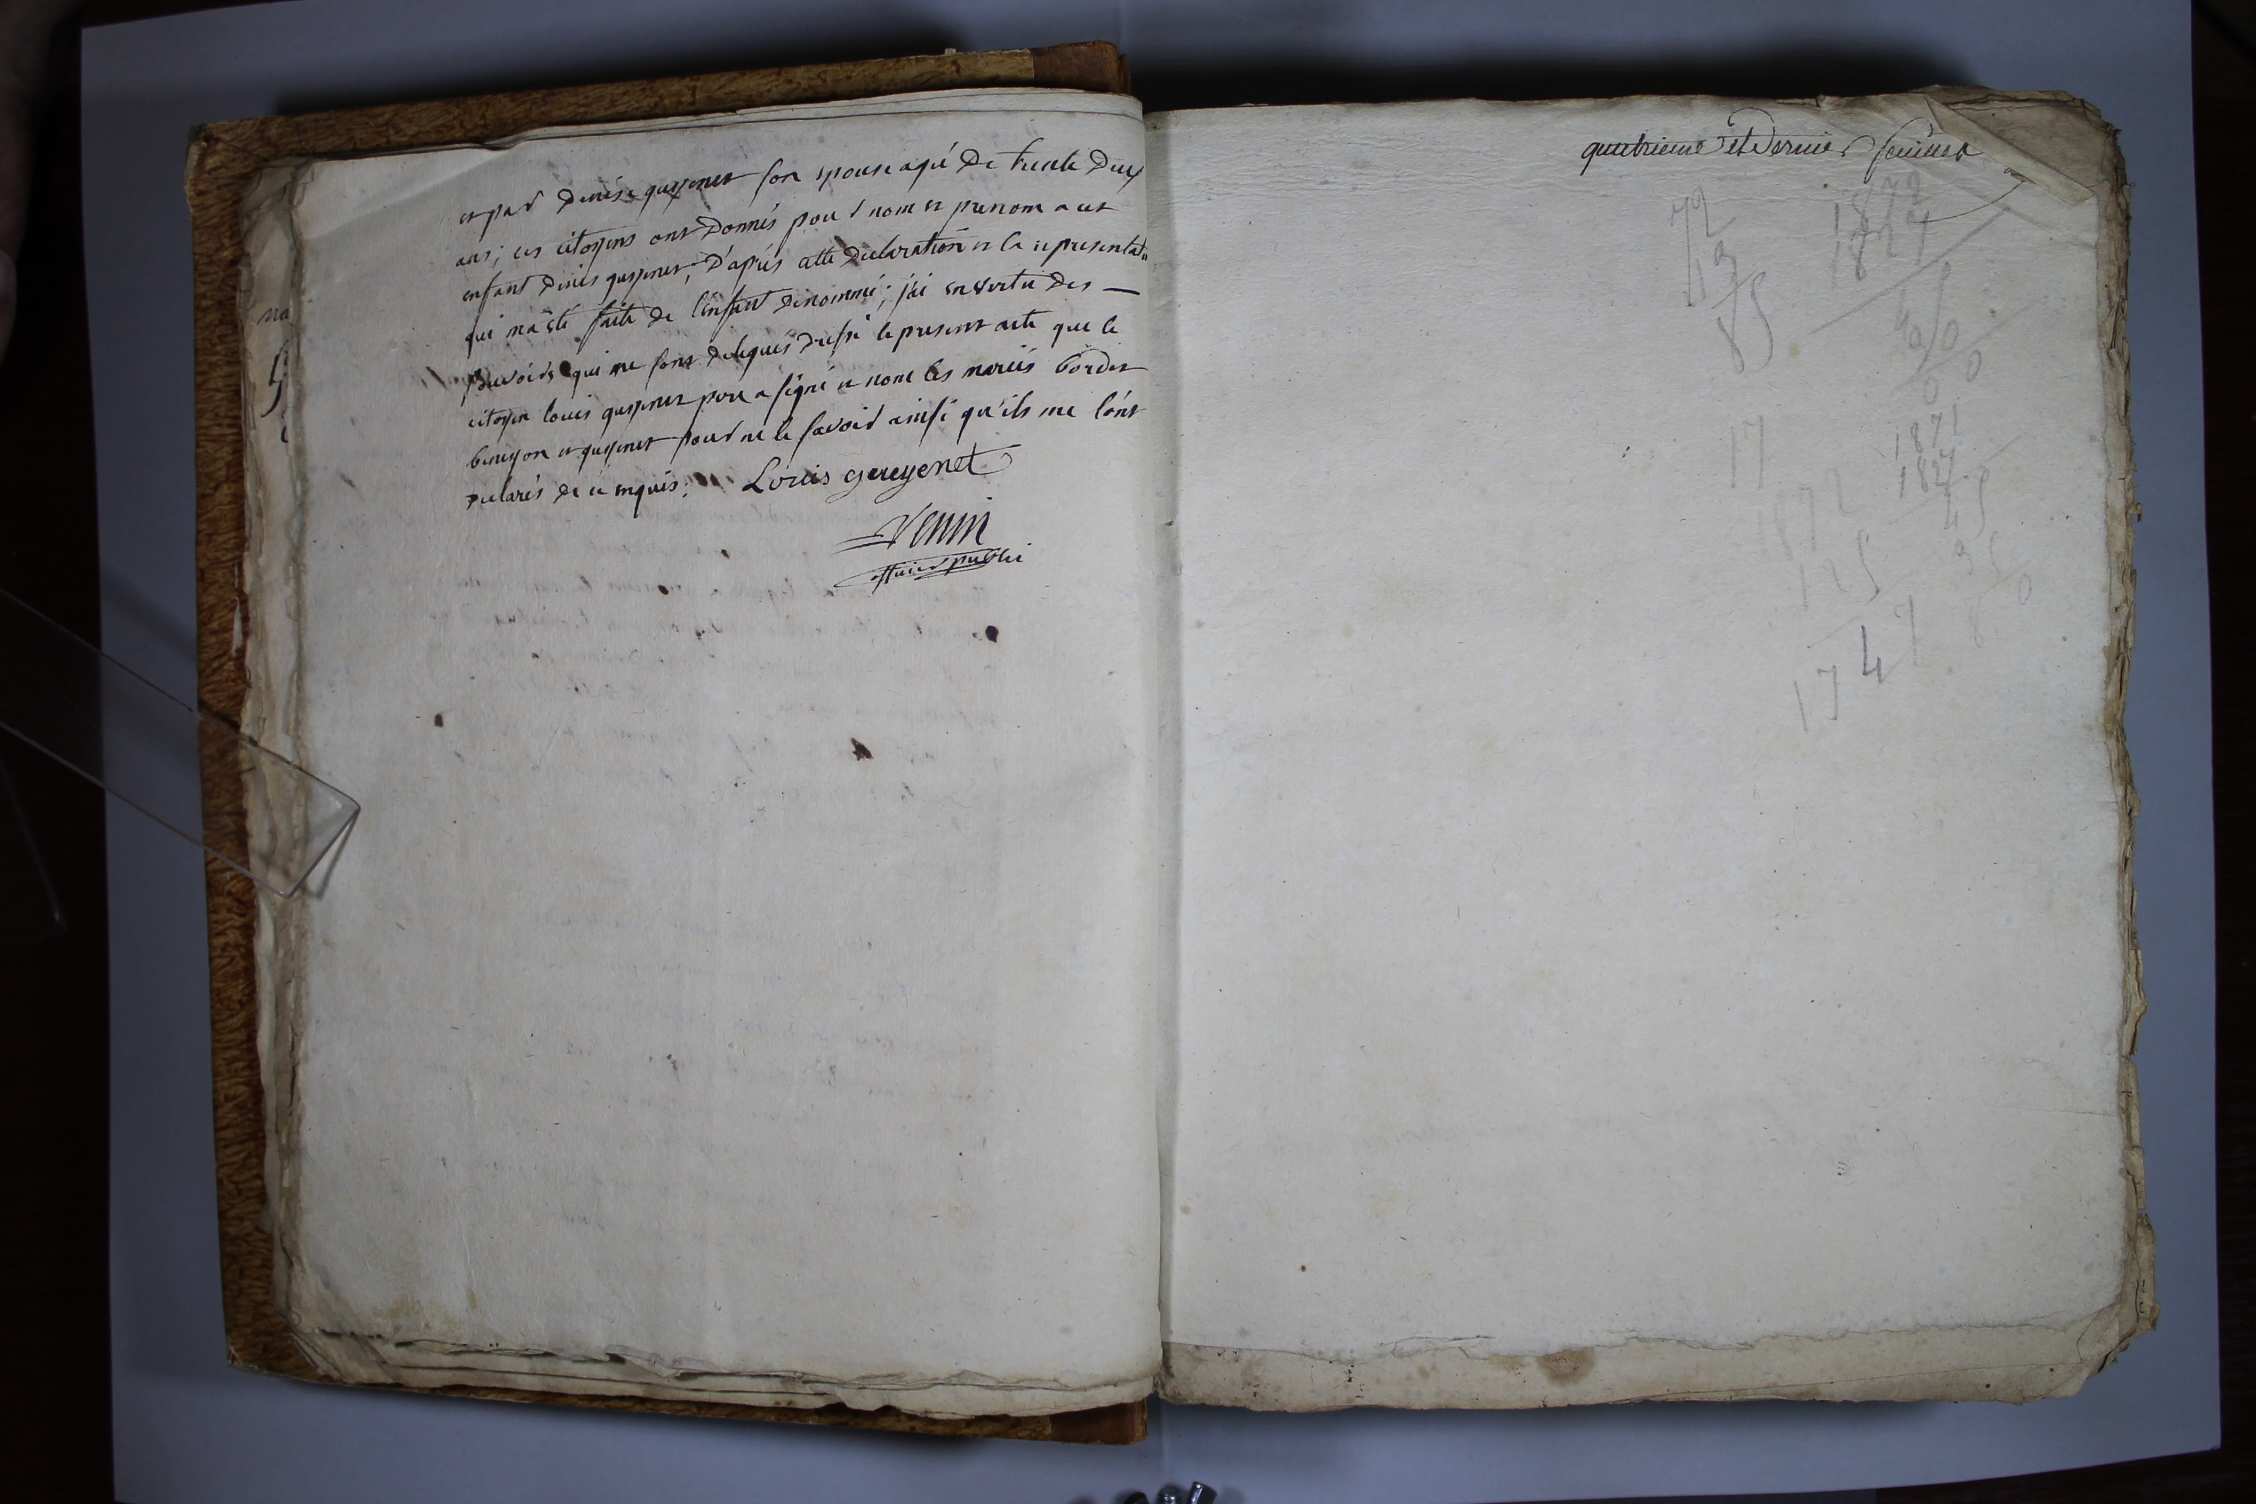 et par denise gueyenet son epouse agé de trente deux
ans; ces citoyens ont donnés pour nom et prenom a cet
enfant denis gueyenet; d'aprés cette declaration et la representat.
qui ma été faite de l'enfant dénommé; j'ai en vertu des —
pouvoirs qui me sont delegués dressé le present acte que le
citoyen louis gueyenet pere a signé et nom les mariés bordet
et gueyenet pour ne le savoir ainsi qu'ils me l'ont
declarés de ce enquis.
Louis gueyenet
Venin
officier public
quatrieme et dernier feuillet
72
13
85
1872
1827
45
90
0
0 0
17
1871
1827
45
95
8 0
1872
125
1747